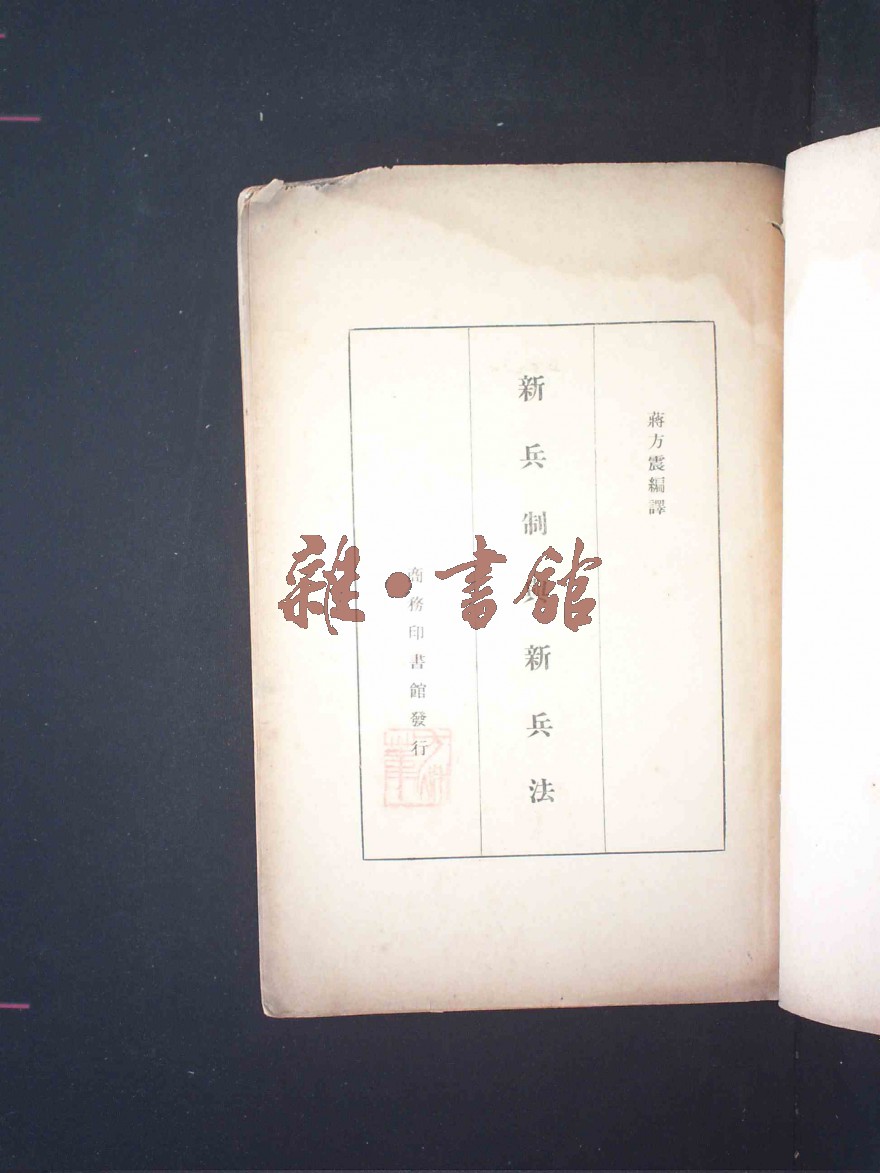 蔣方震編譯
新兵制與新兵法
商務印書館發行
雜·書館